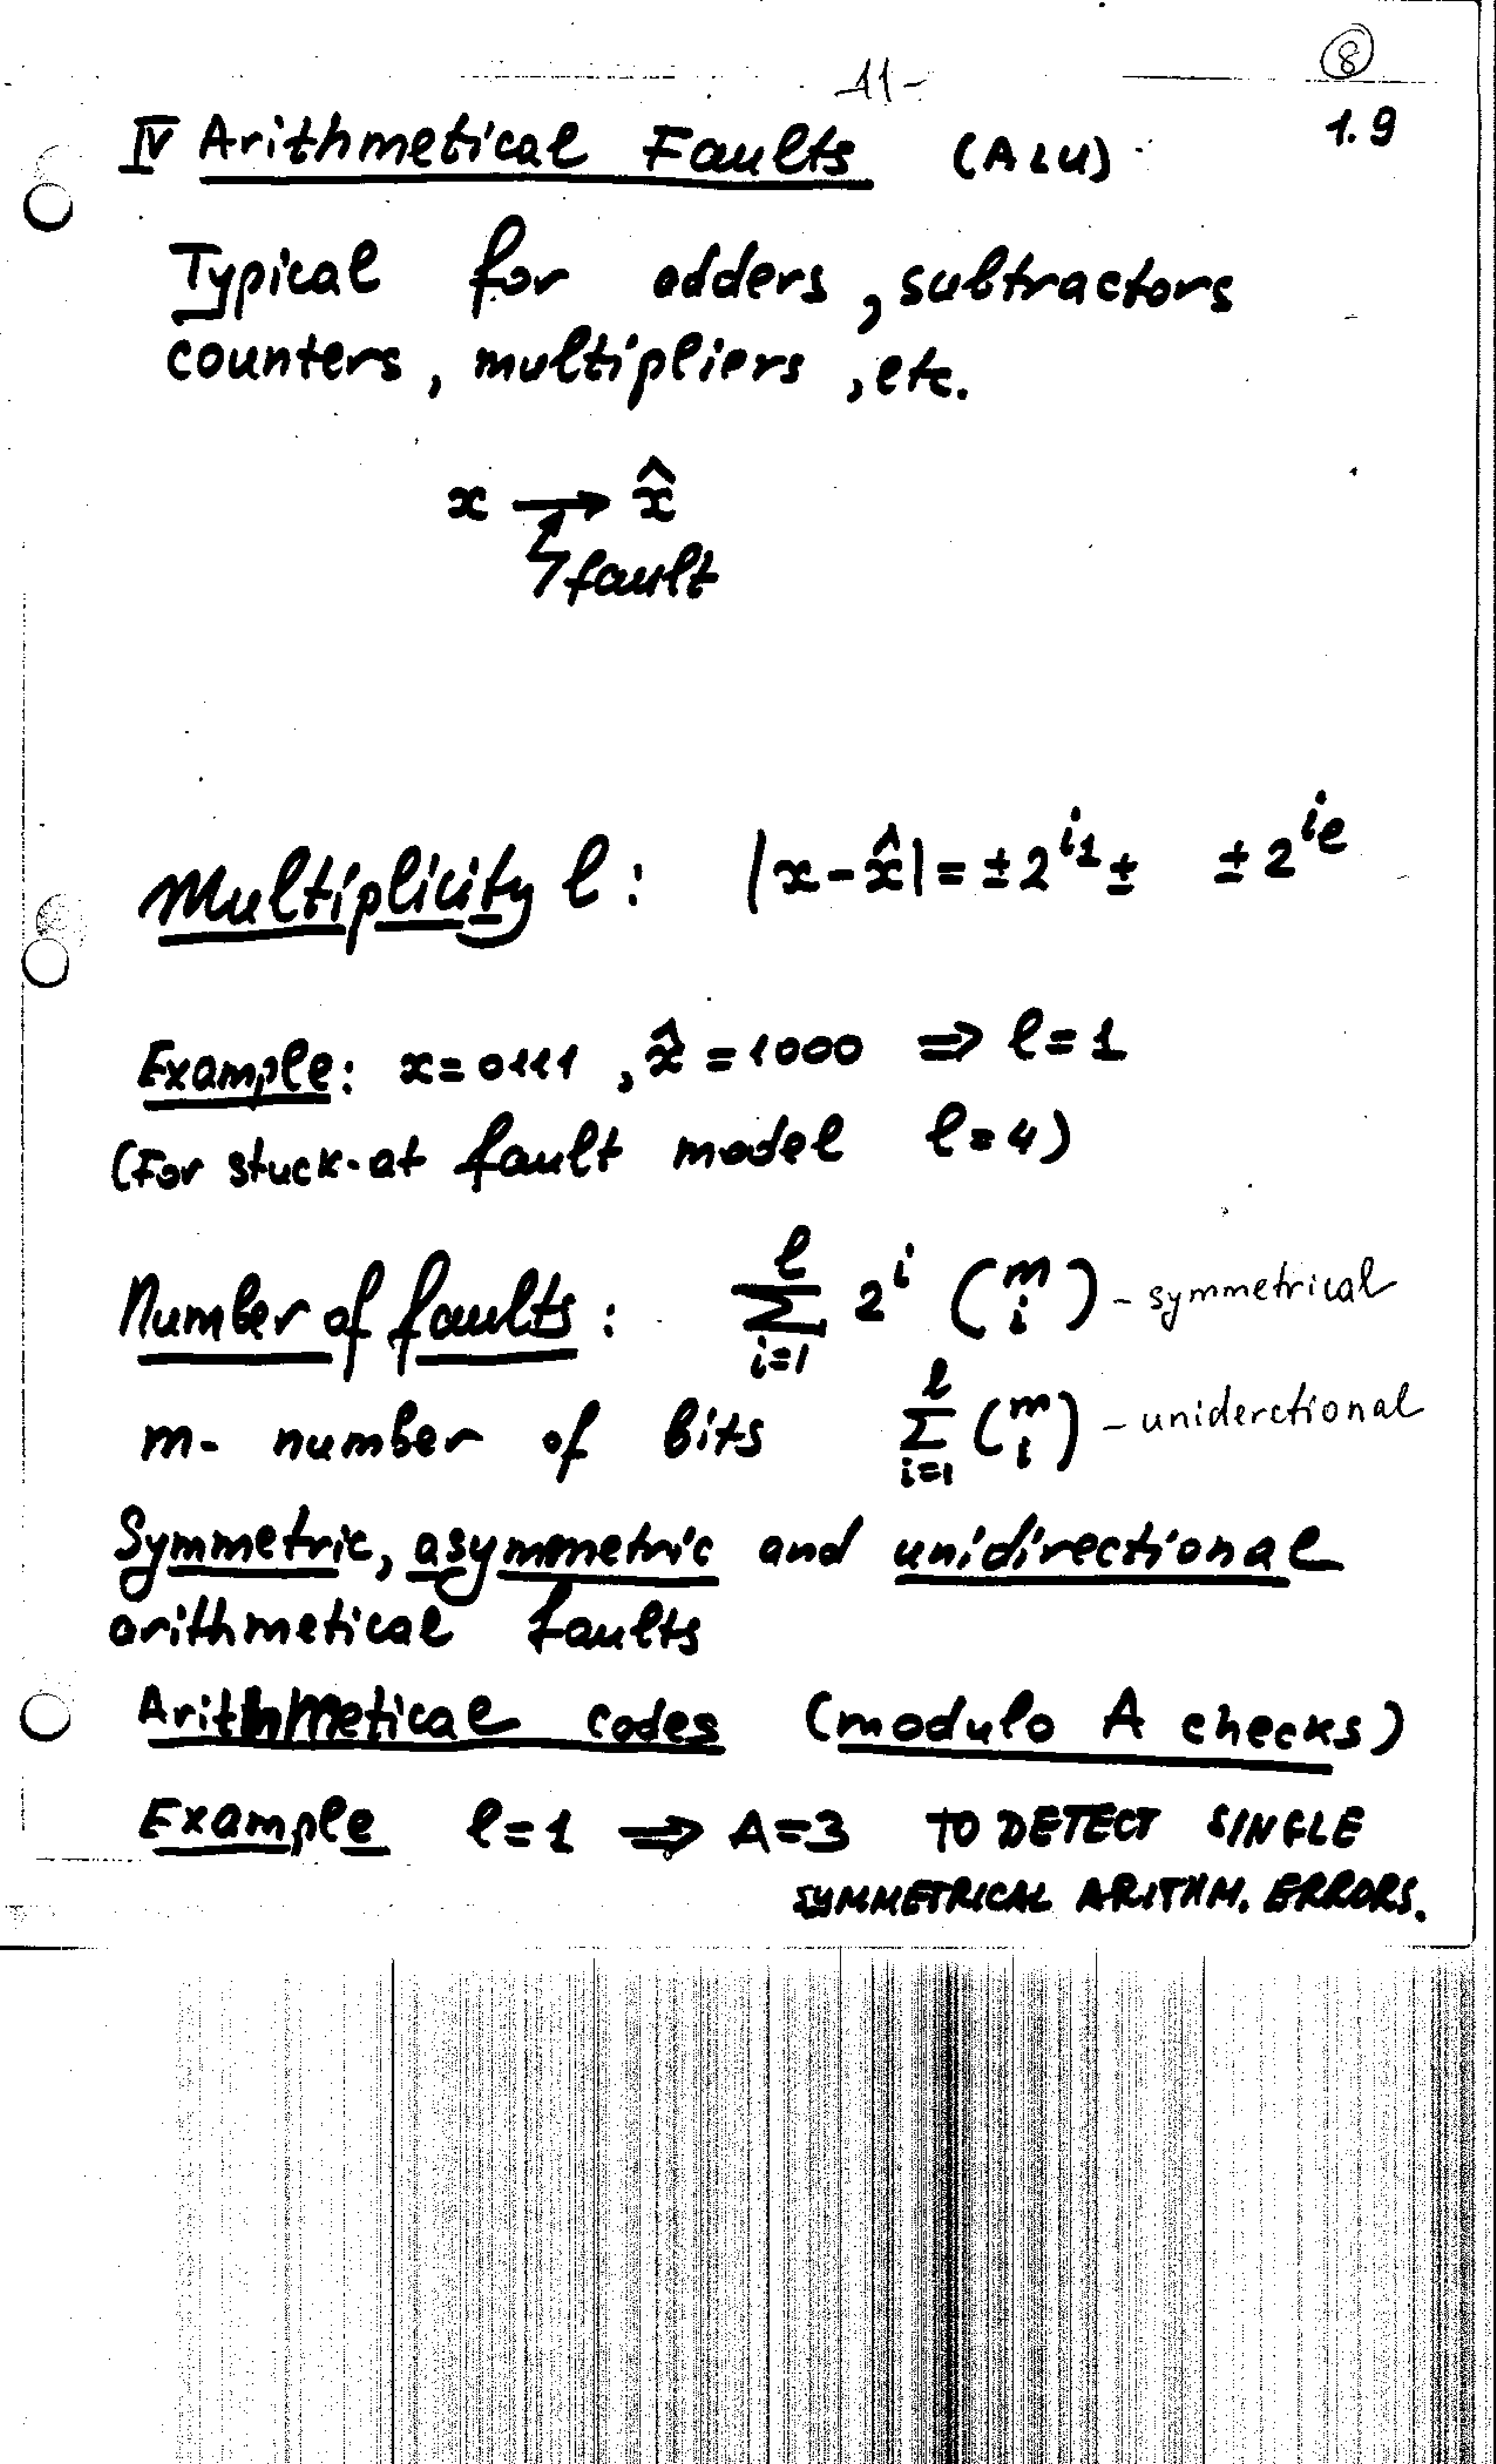 -11-
8
1.9
IV Arithmetical Faults (ALU)
Typical for adders, subtractors
counters, multipliers, etc.
x → x̂
fault
Multiplicity l: |x - x̂| = ± 2^i1 ±   ± 2^il
Example: x = 0111, x̂ = 1000 ⇒ l = 1
(For stuck-at fault model l = 4)
Number of faults: ∑_{i=1}^{l} 2^i (m i) - symmetrical
m - number of bits ∑_{i=1}^{l} (m i) - uniderctional
Symmetric, asymmetric and unidirectional
arithmetical faults
Arithmetical codes (modulo A checks)
Example l = 1 ⇒ A = 3 TO DETECT SINGLE
SYMMETRICAL ARITHM. ERRORS.